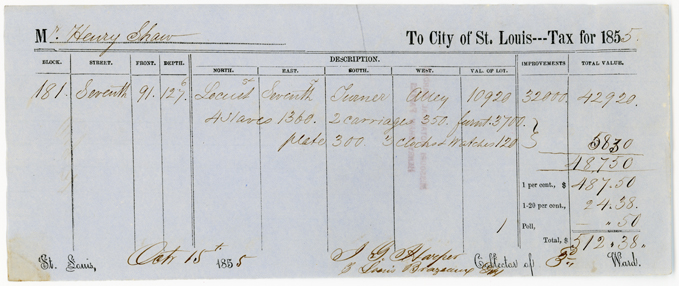 Mr. Henry Shaw To City of St. Louis---Tax for 1855.
DESCRIPTION.
BLOCK. STREET. FRONT. DEPTH. NORTH. EAST. SOUTH. WEST. VAL. OF LOT. IMPROVEMENTS TOTAL VALUE.
181. Seventh 91. 127.6 Locust St Seventh Tinner Alley 10920 32000. 42920.
4 Slaves 1360. 2 carriages 350. furnt. 3700.
plate 300. 3 clocks & Watches 120 5830
48,750
1 per cent., $ 487.50
1-20 per cent., 24.38.
1 Poll, " 50
Total, $ 512.38.
St. Louis, Oct 15th 1855 J. G. Harper Collector of 3d Ward.
Louis Brazeaux